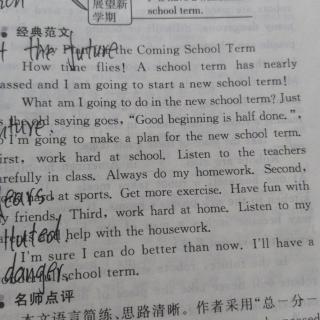 展望新
学期
school term.
经典范文
the future
the Coming School Term
How time flies! A school term has nearly
passed and I am going to start a new school term!
What am I going to do in the new school term? Just
the old saying goes, "Good beginning is half done.",
I'm going to make a plan for the new school term.
First, work hard at school. Listen to the teachers
carefully in class. Always do my homework. Second,
at sports. Get more exercise. Have fun with
my friends. Third, work hard at home. Listen to my
help with the housework.
I'm sure I can do better than now. I'll have a
school term.
danger
名师点评
本文语言简练、思路清晰。作者采用“总－分－